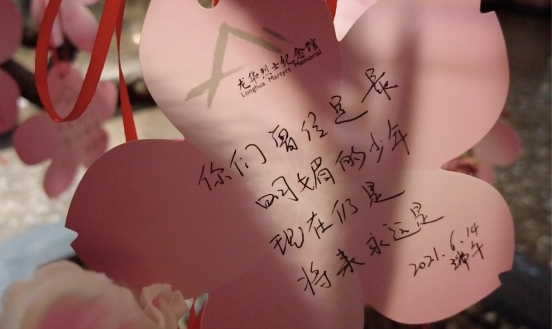 龙华烈士纪念馆
Longhua Martyrs Memorial
你们曾经是长
明媚的少年
现在仍是
将来永远是
2021.6.14
端午